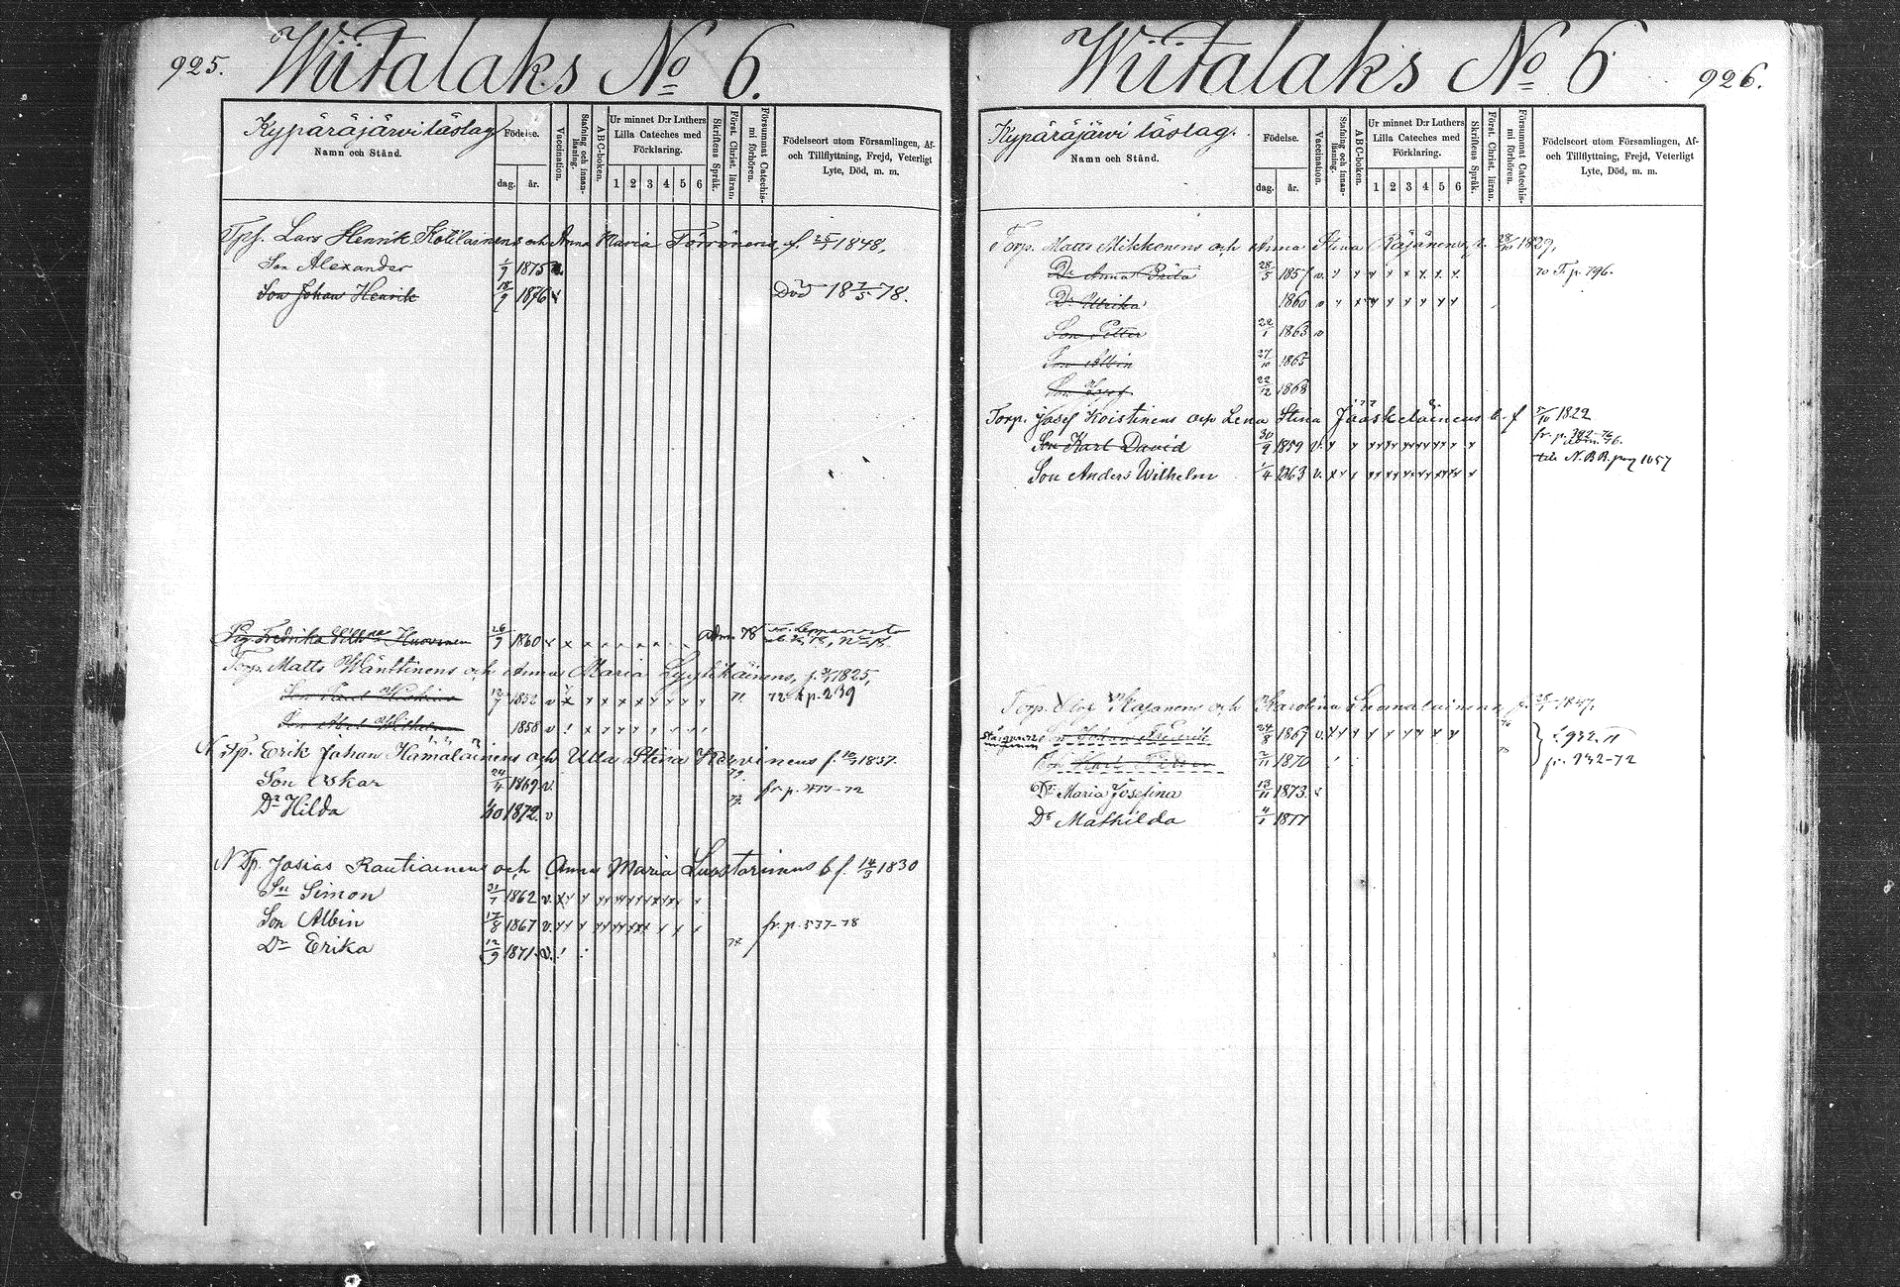 925.
Wiitalaks No 6.
Kypäräjärvi läslag
Namn och Stånd.
Födelse.
dag. år.
Vaccination.
Stafning och innanläsning.
A B C-boken.
Ur minnet D:r Luthers Lilla Cateches med Förklaring.
1 2 3 4 5 6
Skriftens Språk.
Först. Christ. läran.
Försummat Catechismi förhören.
Födelseort utom Församlingen, Af- och Tillflyttning, Frejd, Veterligt Lyte, Död, m. m.
Lars Henrik Kotilainens och Anna Maria Törrönens, f. 1848,
Son Alexander 1/9 1875
Son Johan Henrik 18/9 1876 Död 18 7/5 78.
Fredrika Huovinen 26/9 1860 adm 78
Torp. Matts Wänttinens och Anna Maria Lyytikäinens, f. 1825,
1852 p. 239
Son Abel Wilhelm 1858
N Tp. Erik Johan Hämäläinens och Ulla Stina Hirvinens f. 1837.
Son Oskar 24/4 1869 v. fr p. 477-72
Dr Hilda 1872. v
N Tp. Josias Rautiainens och Anna Maria Luostarinens b f. 14/5 1830
Sn Simon 31/7 1862 v.
Son Albin 17/8 1867 v. fr. p. 537-78
Dr Erika 12/9 1871. v.
926.
Wiitalaks No 6
Kypäräjärvi läslag.
Namn och Stånd.
Födelse.
dag. år.
Vaccination.
Stafning och innanläsning.
A B C-boken.
Ur minnet D:r Luthers Lilla Cateches med Förklaring.
1 2 3 4 5 6
Skriftens Språk.
Först. Christ. läran.
Försummat Catechismi förhören.
Födelseort utom Församlingen, Af- och Tillflyttning, Frejd, Veterligt Lyte, Död, m. m.
Torp. Matts Mikkonens och Anna Stina Räjänens, 1829,
Dr Anna Brita 28/5 1857 v. p. 796.
Dr Ulrika 1860 v
Son Petter 22/1 1863 v
Son Albin 27/10 1865
Son Josef 22/12 1868
Torp. Josef Koistinens och Lena Stina Jääskeläinens b. f 1822
Son Karl David 30/9 1859 v. fr. p. 392-76
Son Anders Wilhelm 1/4 1863 v. till N.B.B. pag 1057
Torp. Olof Kajanens och Karolina Luomalainens f. 1847.
Son Johan Fredrik 24/8 1867 v. 932. II
Son Karl 2/11 1870 fr. 932-72
Dr Maria Josefina 13/11 1873.
Dr Mathilda 4/1 1877